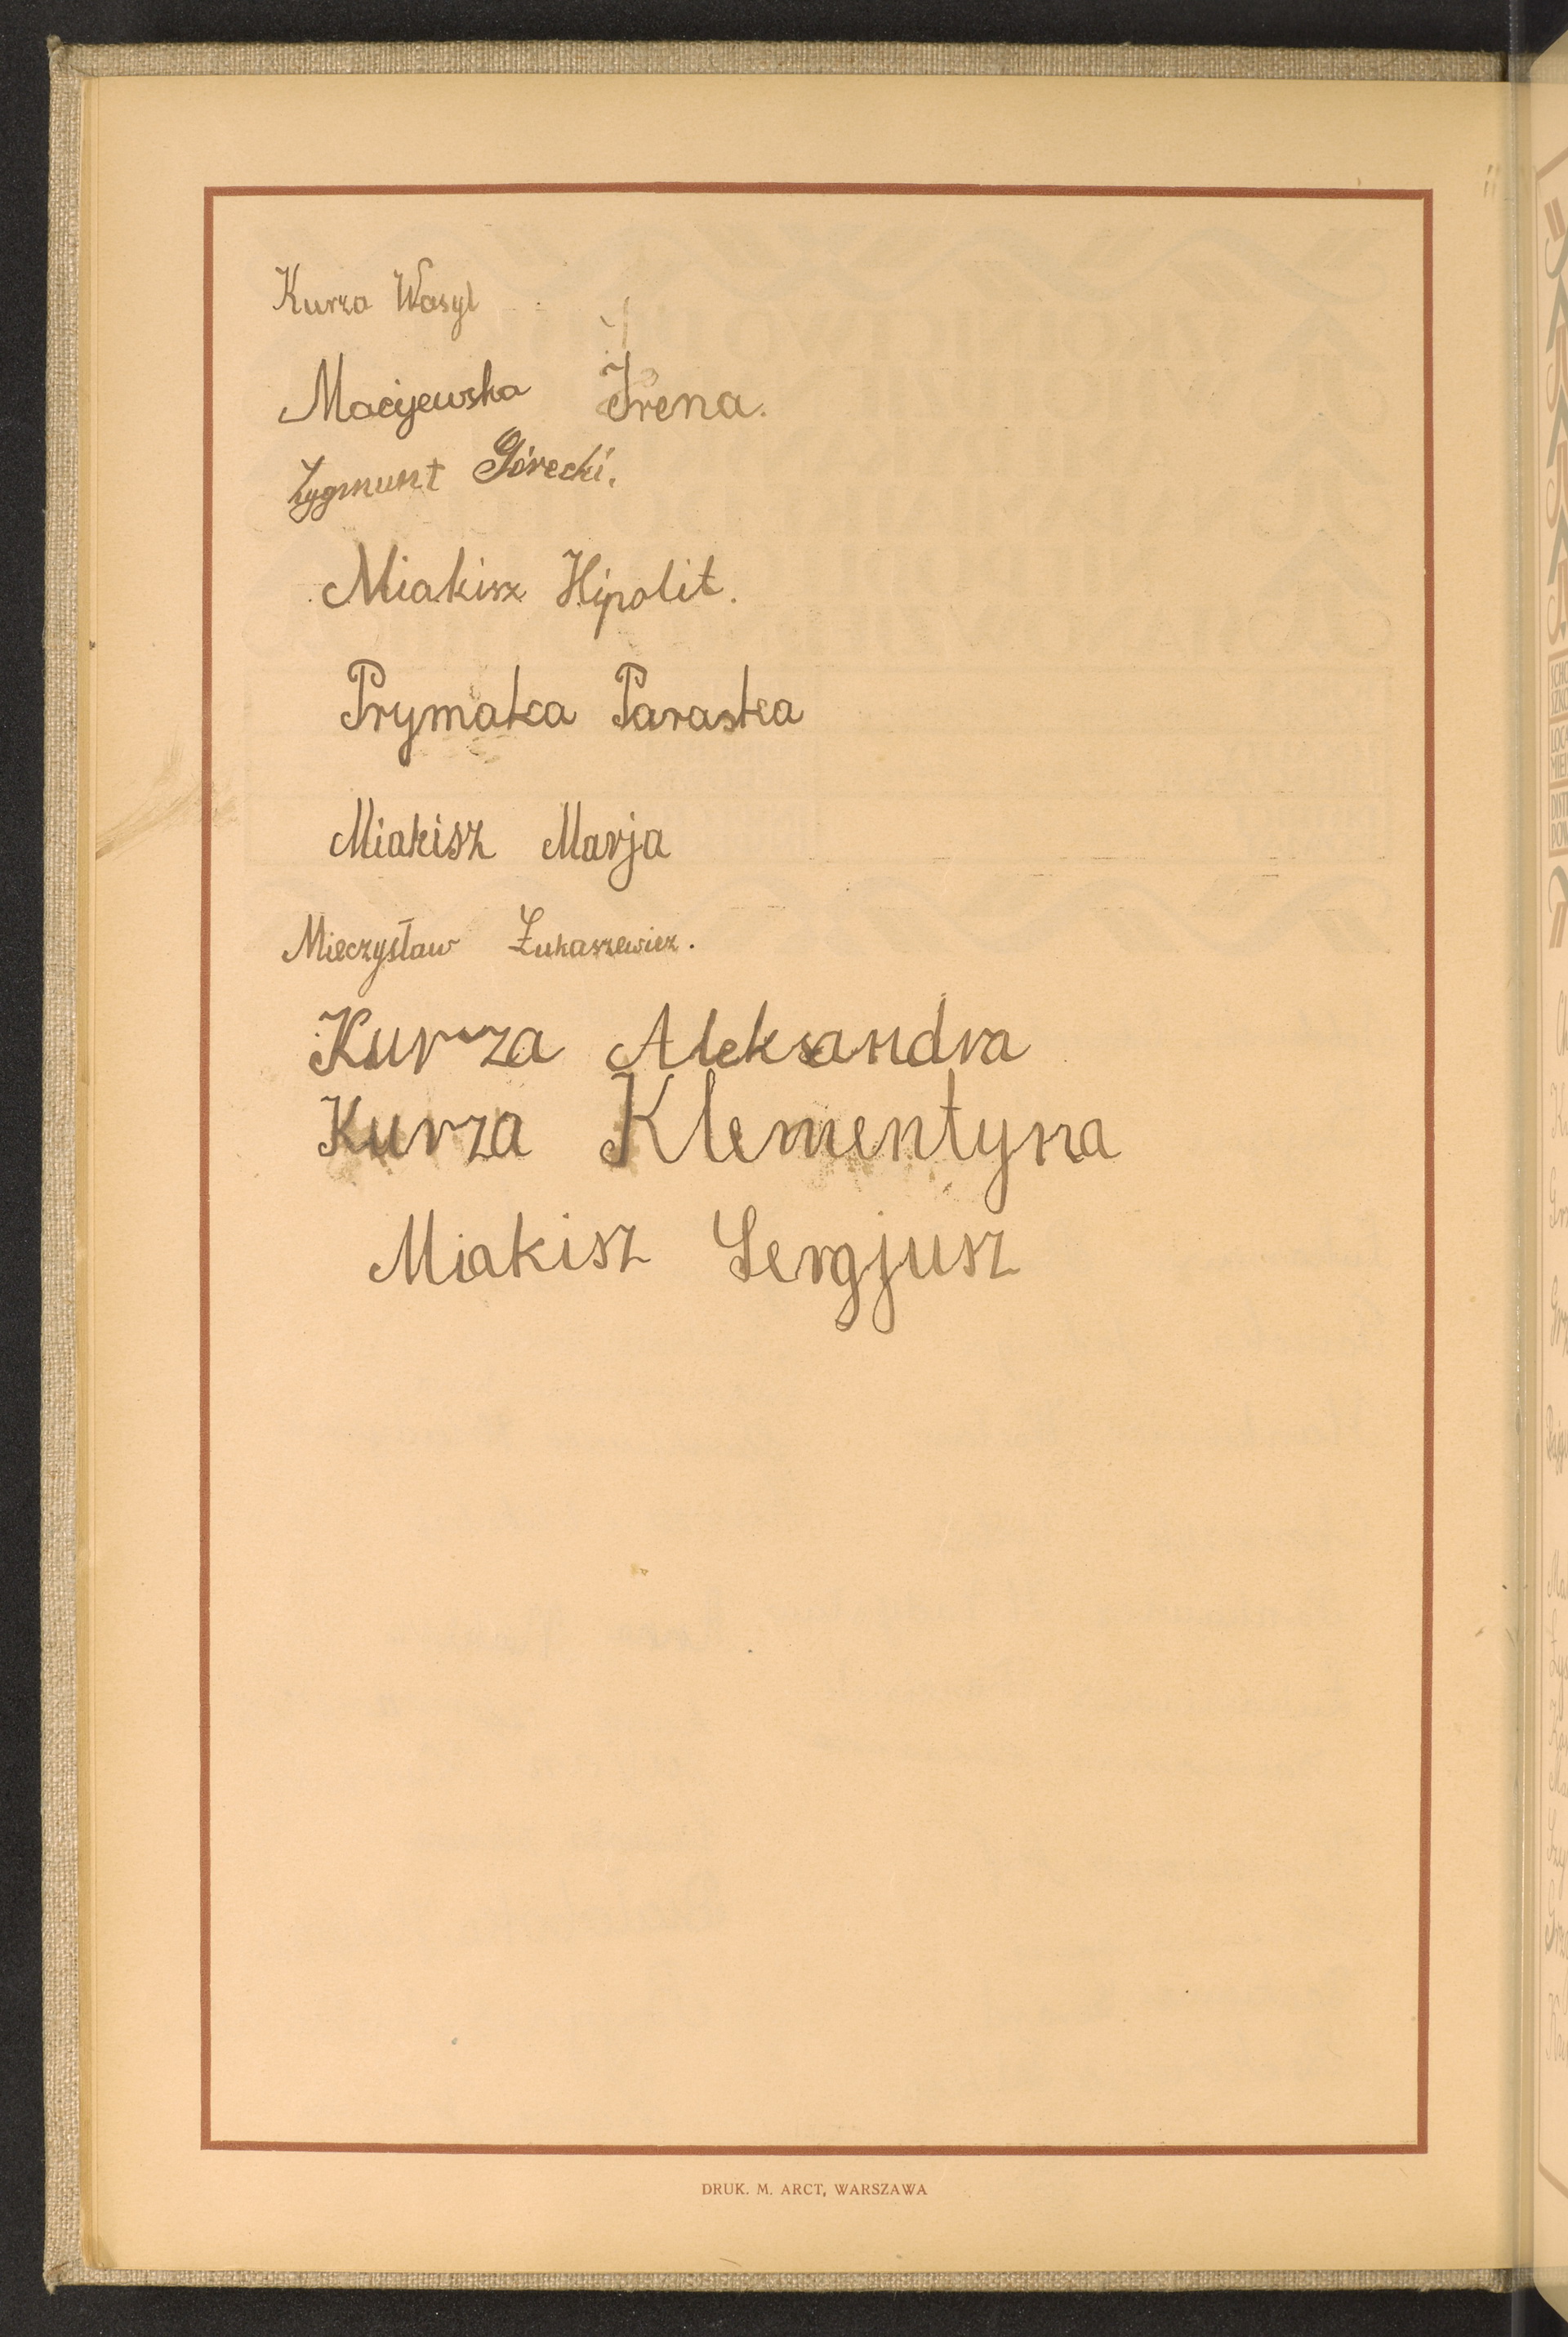 Kurza Wasyl
Maciejewska Irena.
Zygmunt Górecki.
Miakisz Hipolit.
Prymaka Paraska
Miakisz Marja
Mieczysław Łukaszewicz.
Kurza Aleksandra
Kurza Klementyna
Miakisz Sergjusz
DRUK. M. ARCT, WARSZAWA